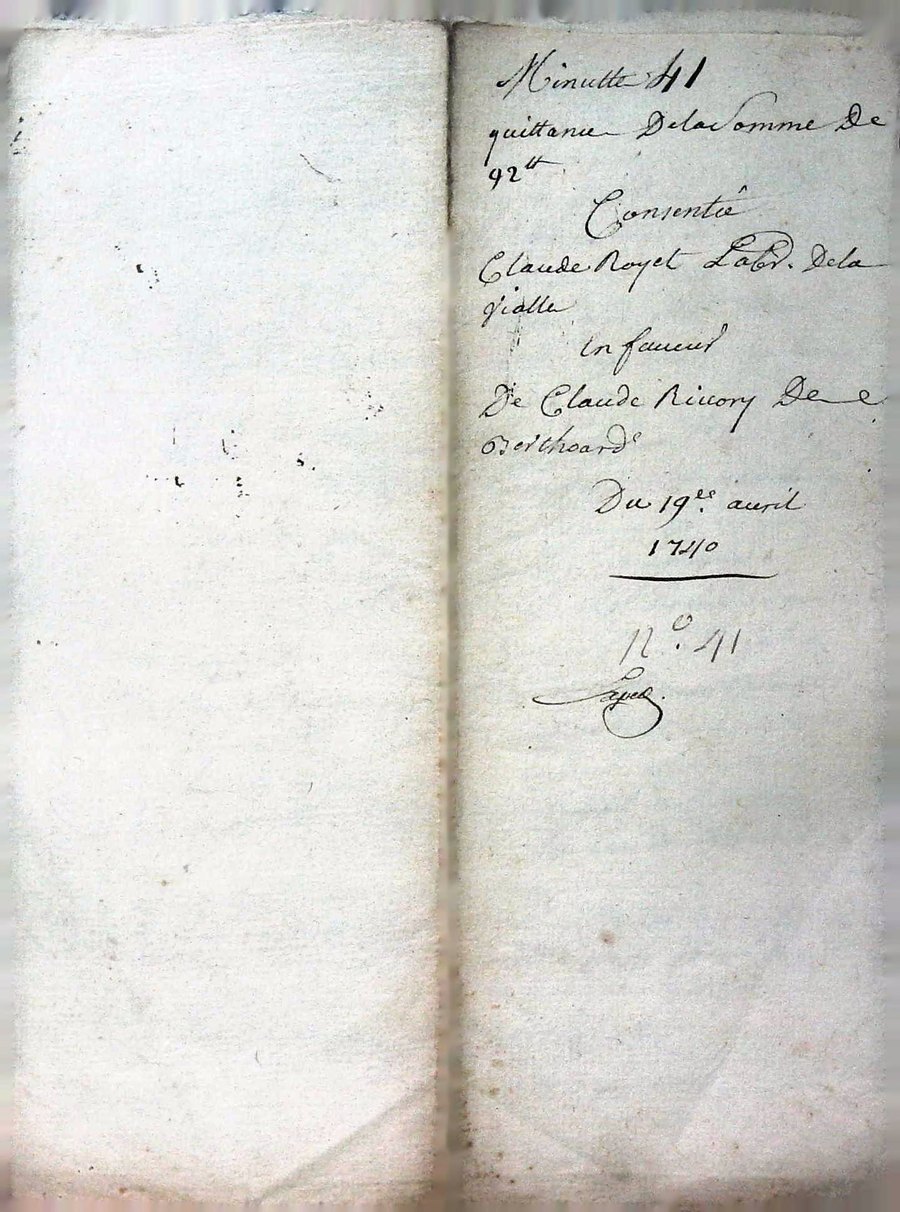 Minutte 41
quittance Dela Somme De
92tt
Consentie
Claude Royet Labr. Dela
Vialle
en faveur
De Claude Rivory De
Berthoard
Du 19ee. avril
1740
No. 41